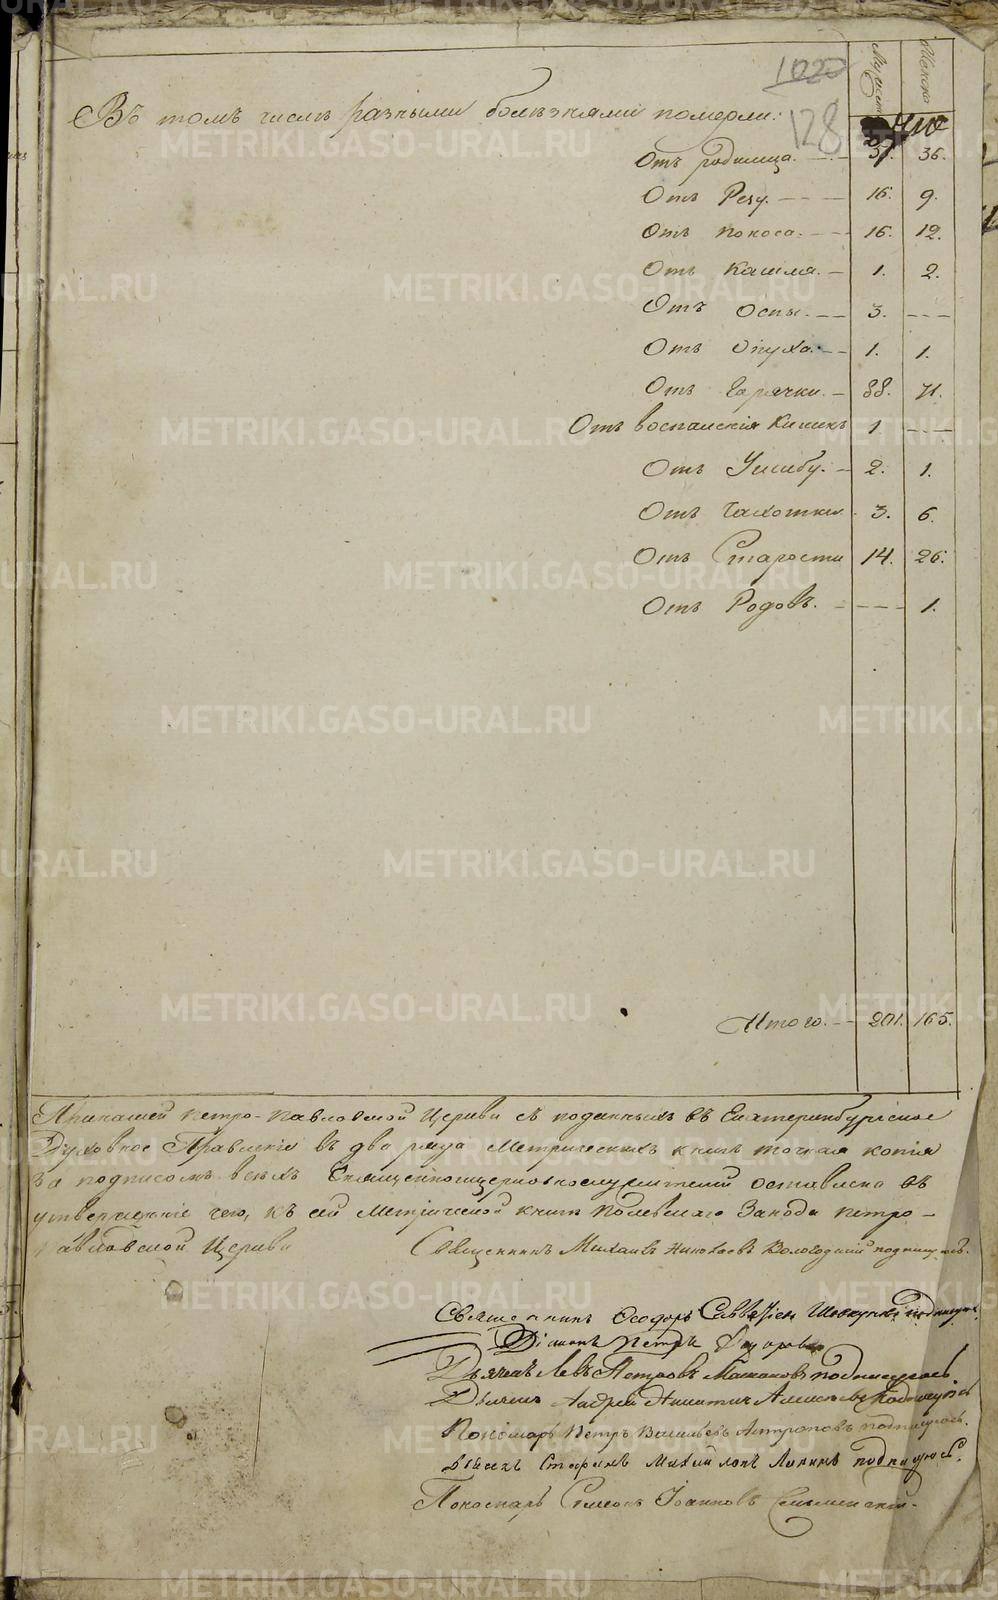 1020
128
Мужеск
Женска
Въ томъ числѣ разными болѣзнями померли:
Отъ родимца. 57. 36.
Отъ Резу. 16. 9.
Отъ поноса. 16. 12.
Отъ Кашля. 1. 2.
Отъ Оспы. 3.
Отъ Опуха. 1. 1.
Отъ Горячки. 88. 71.
Отъ воспаленія Кишекъ 1
Отъ Ушибу. 2. 1.
Отъ Чахотки. 3. 6.
Отъ Старости 14. 26.
Отъ Родовъ. 1.
Итого. 201. 165.
Петро-Павловской Церкви съ поданныхъ въ Екатеринбургское
Духовное Правленіе въ два ряда Метрическихъ книгъ точная копія
За подписомъ всѣхъ Священноцерковнослужителей оставлена въ
утвержденіе чего, къ сей Метрической книгѣ Полевскаго Завода Петро-
Павловской Церкви Священникъ Михаилъ Николаевъ Вологодскій подписуюсь.
Священникъ Ѳеодоръ
Діаконъ Петръ
Дьячекъ Левъ Петровъ подписуюсь.
Дьячекъ Андрей Никитинъ подписуюсь
Пономарь Петръ Васильевъ Антроповъ подписуюсь.
Стефанъ Михайловъ подписуюсь.
Пономарь Симеонъ Іоанновъ
METRIKI.GASO-URAL.RU